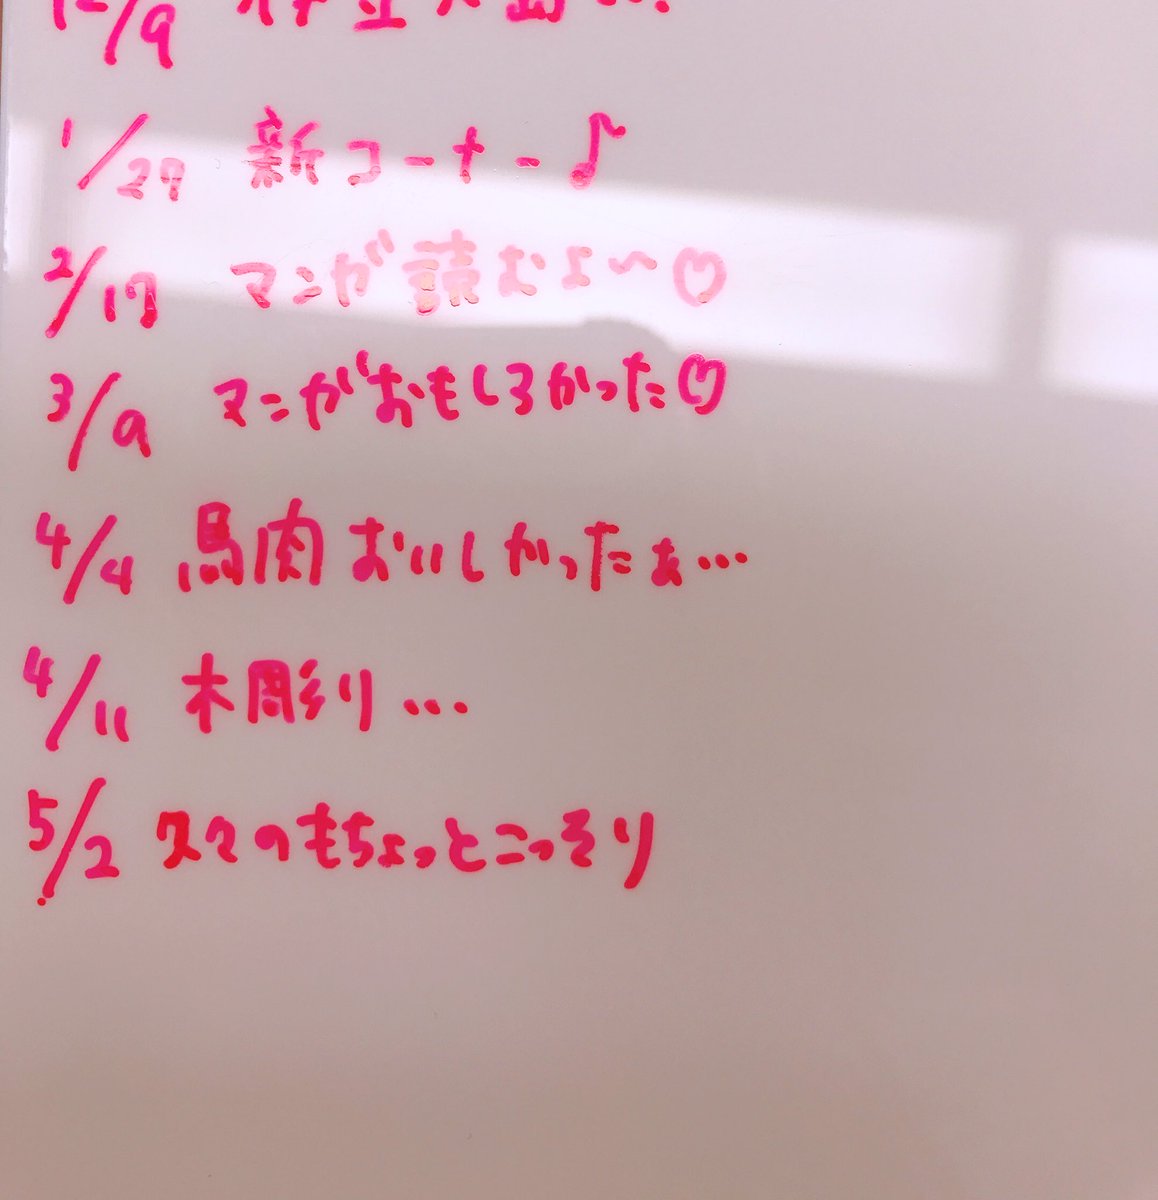 12/9 伊豆大島
1/27 新コーナー♪
2/17 マンガ読むよ〜♡
3/9 マンガおもしろかった♡
4/4 馬肉おいしかったぁ…
4/11 木彫り…
5/2 久々のもちょっとこっそり